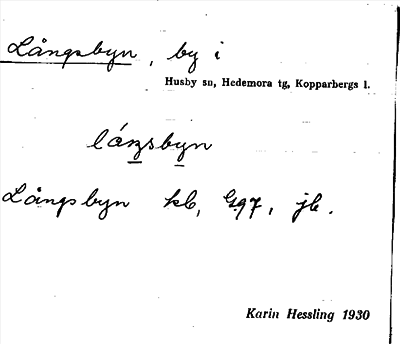 Långsbyn, by i
Husby sn, Hedemora tg, Kopparbergs l.
láŋsbyn
Långsbyn kb, G97, jb.
Karin Hessling 1930